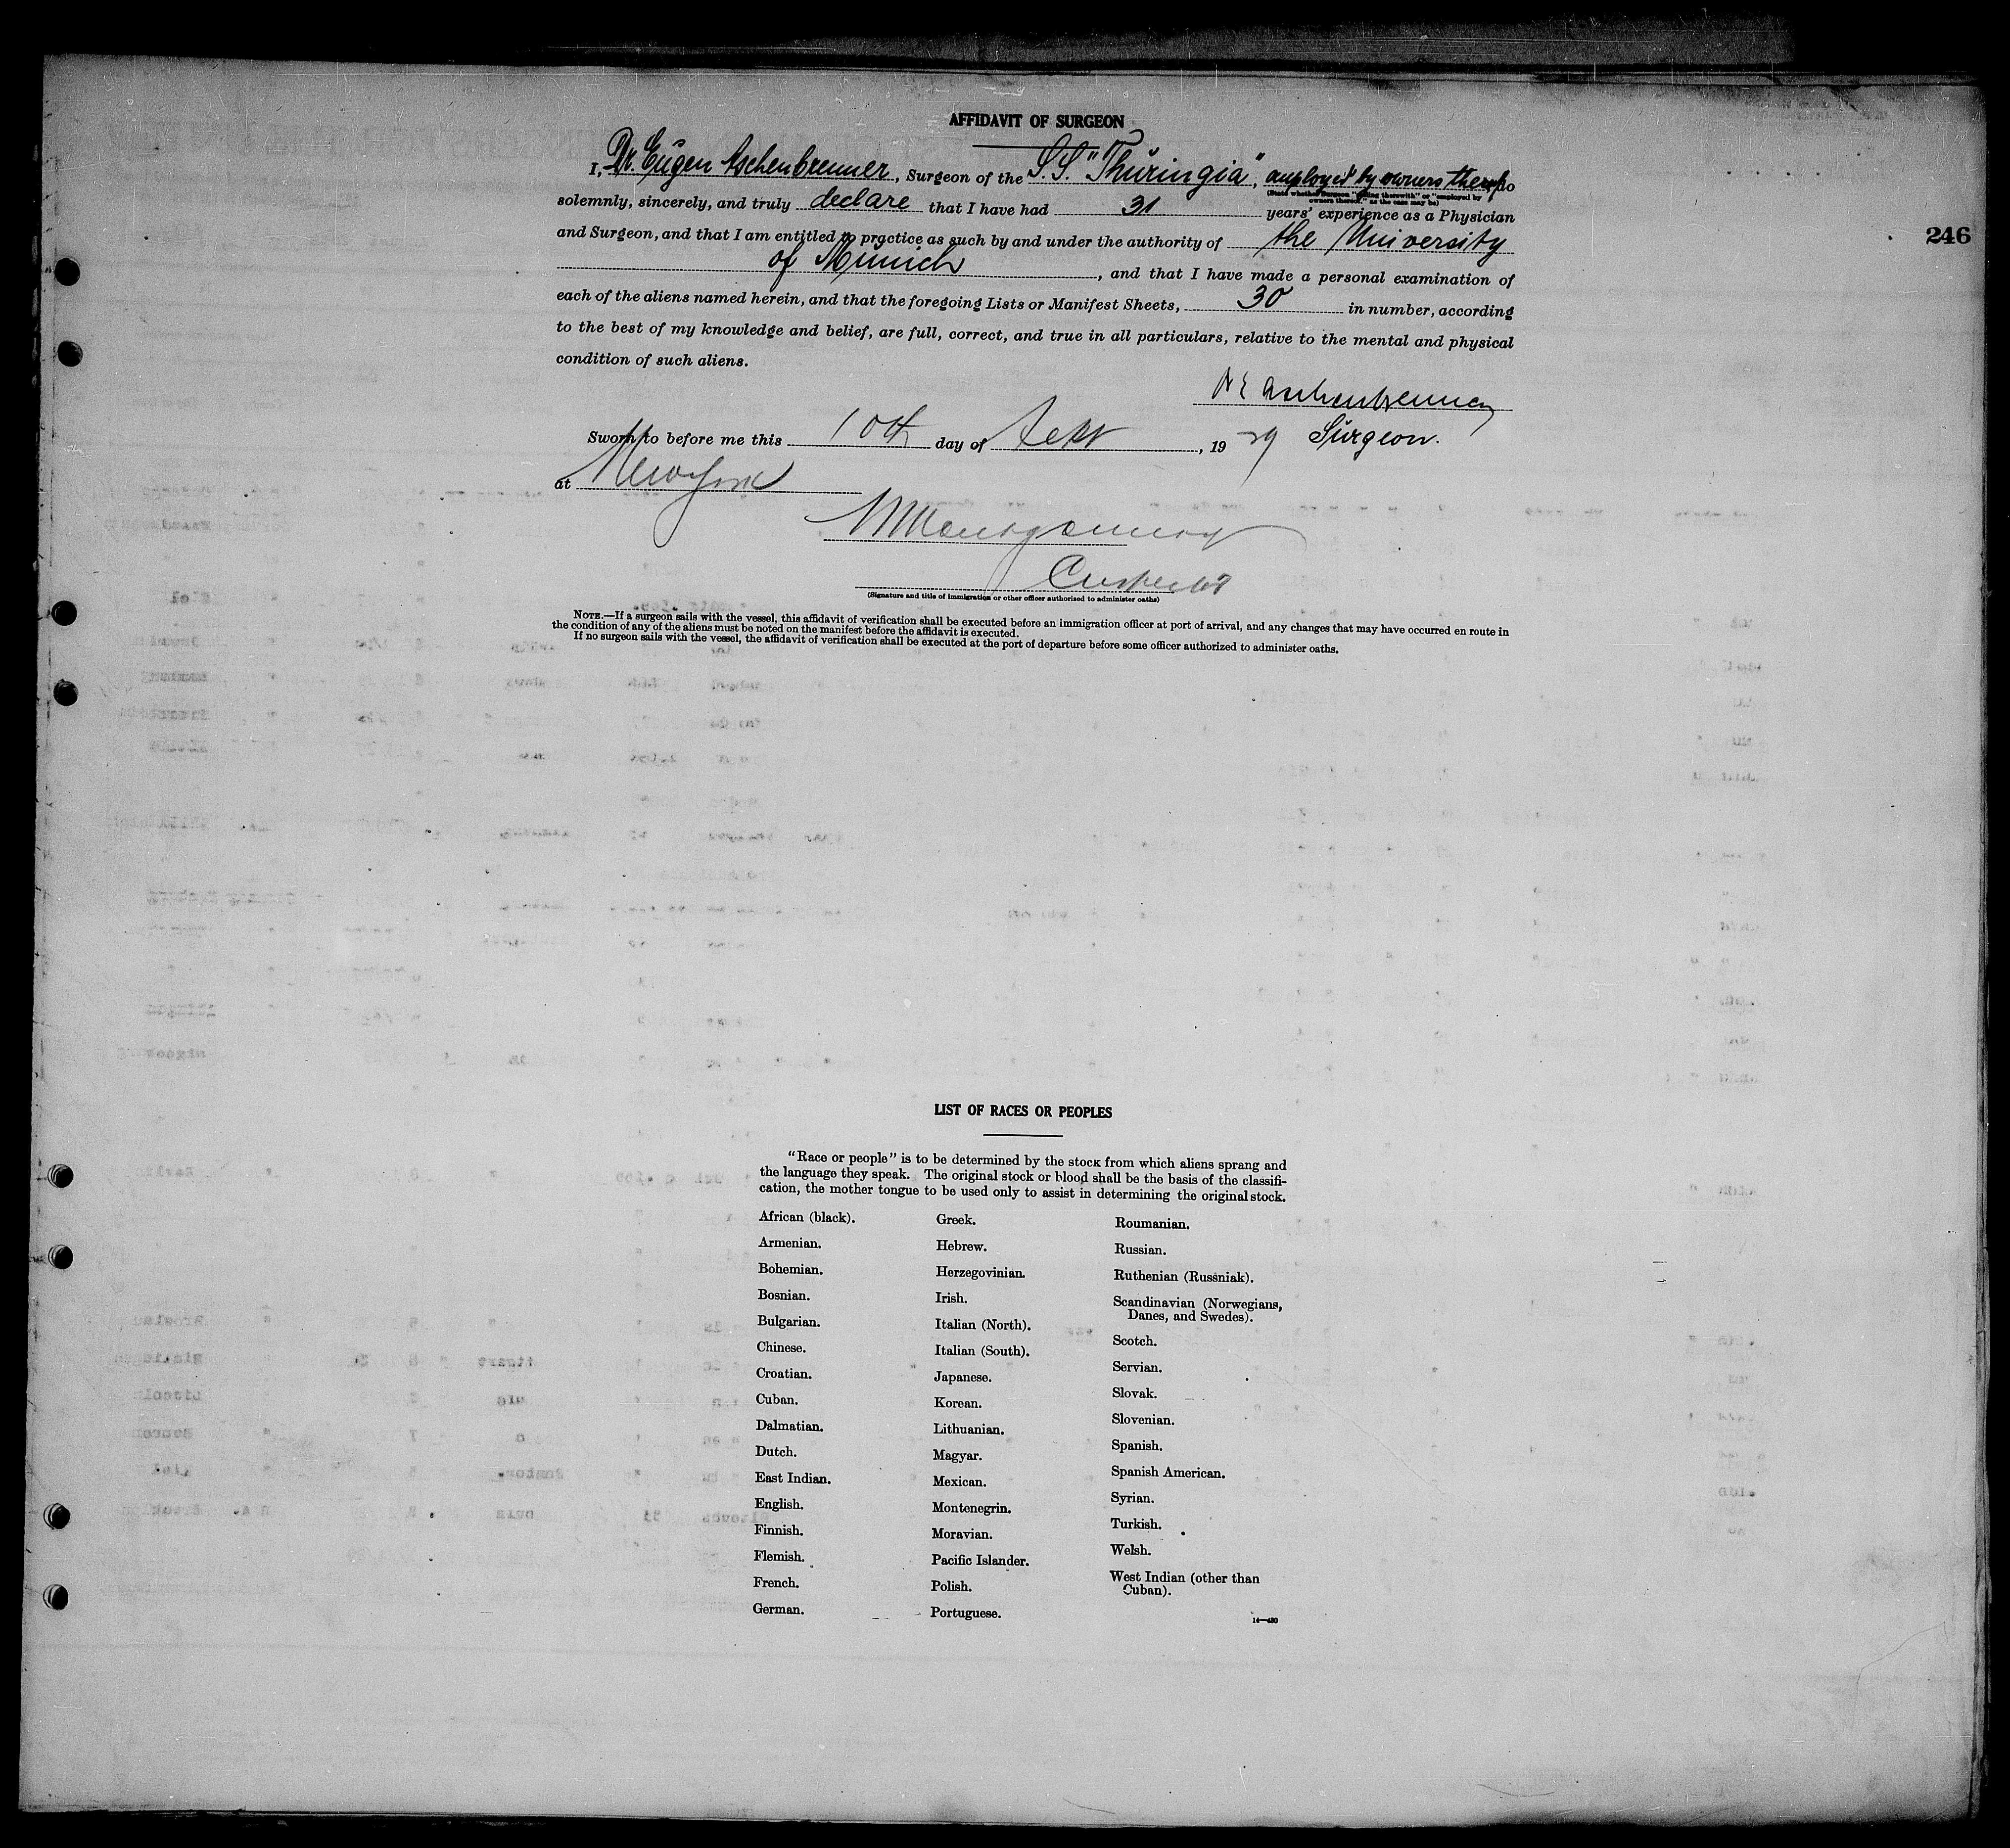 AFFIDAVIT OF SURGEON
I, Dr. Eugen Aschenbrenner, Surgeon of the S.S. "Thüringia", employed by owners thereof do
(State whether Surgeon "sailing therewith" or "employed by
owners thereof," as the case may be)
solemnly, sincerely, and truly declare that I have had 31 years' experience as a Physician
and Surgeon, and that I am entitled to practice as such by and under the authority of the University
246
of Münich, and that I have made a personal examination of
each of the aliens named herein, and that the foregoing Lists or Manifest Sheets, 30 in number, according
to the best of my knowledge and belief, are full, correct, and true in all particulars, relative to the mental and physical
condition of such aliens.
Dr E Aschenbrenner
Sworn to before me this 10th day of Sept, 19 29 Surgeon.
at New York
Montgomery
Inspector
(Signature and title of immigration or other officer authorized to administer oaths)
NOTE.—If a surgeon sails with the vessel, this affidavit of verification shall be executed before an immigration officer at port of arrival, and any changes that may have occurred en route in
the condition of any of the aliens must be noted on the manifest before the affidavit is executed.
If no surgeon sails with the vessel, the affidavit of verification shall be executed at the port of departure before some officer authorized to administer oaths.
LIST OF RACES OR PEOPLES
"Race or people" is to be determined by the stock from which aliens sprang and
the language they speak. The original stock or blood shall be the basis of the classifi-
cation, the mother tongue to be used only to assist in determining the original stock.
African (black).
Armenian.
Bohemian.
Bosnian.
Bulgarian.
Chinese.
Croatian.
Cuban.
Dalmatian.
Dutch.
East Indian.
English.
Finnish.
Flemish.
French.
German.
Greek.
Hebrew.
Herzegovinian.
Irish.
Italian (North).
Italian (South).
Japanese.
Korean.
Lithuanian.
Magyar.
Mexican.
Montenegrin.
Moravian.
Pacific Islander.
Polish.
Portuguese.
Roumanian.
Russian.
Ruthenian (Russniak).
Scandinavian (Norwegians,
Danes, and Swedes).
Scotch.
Servian.
Slovak.
Slovenian.
Spanish.
Spanish American.
Syrian.
Turkish.
Welsh.
West Indian (other than
Cuban).
14—430